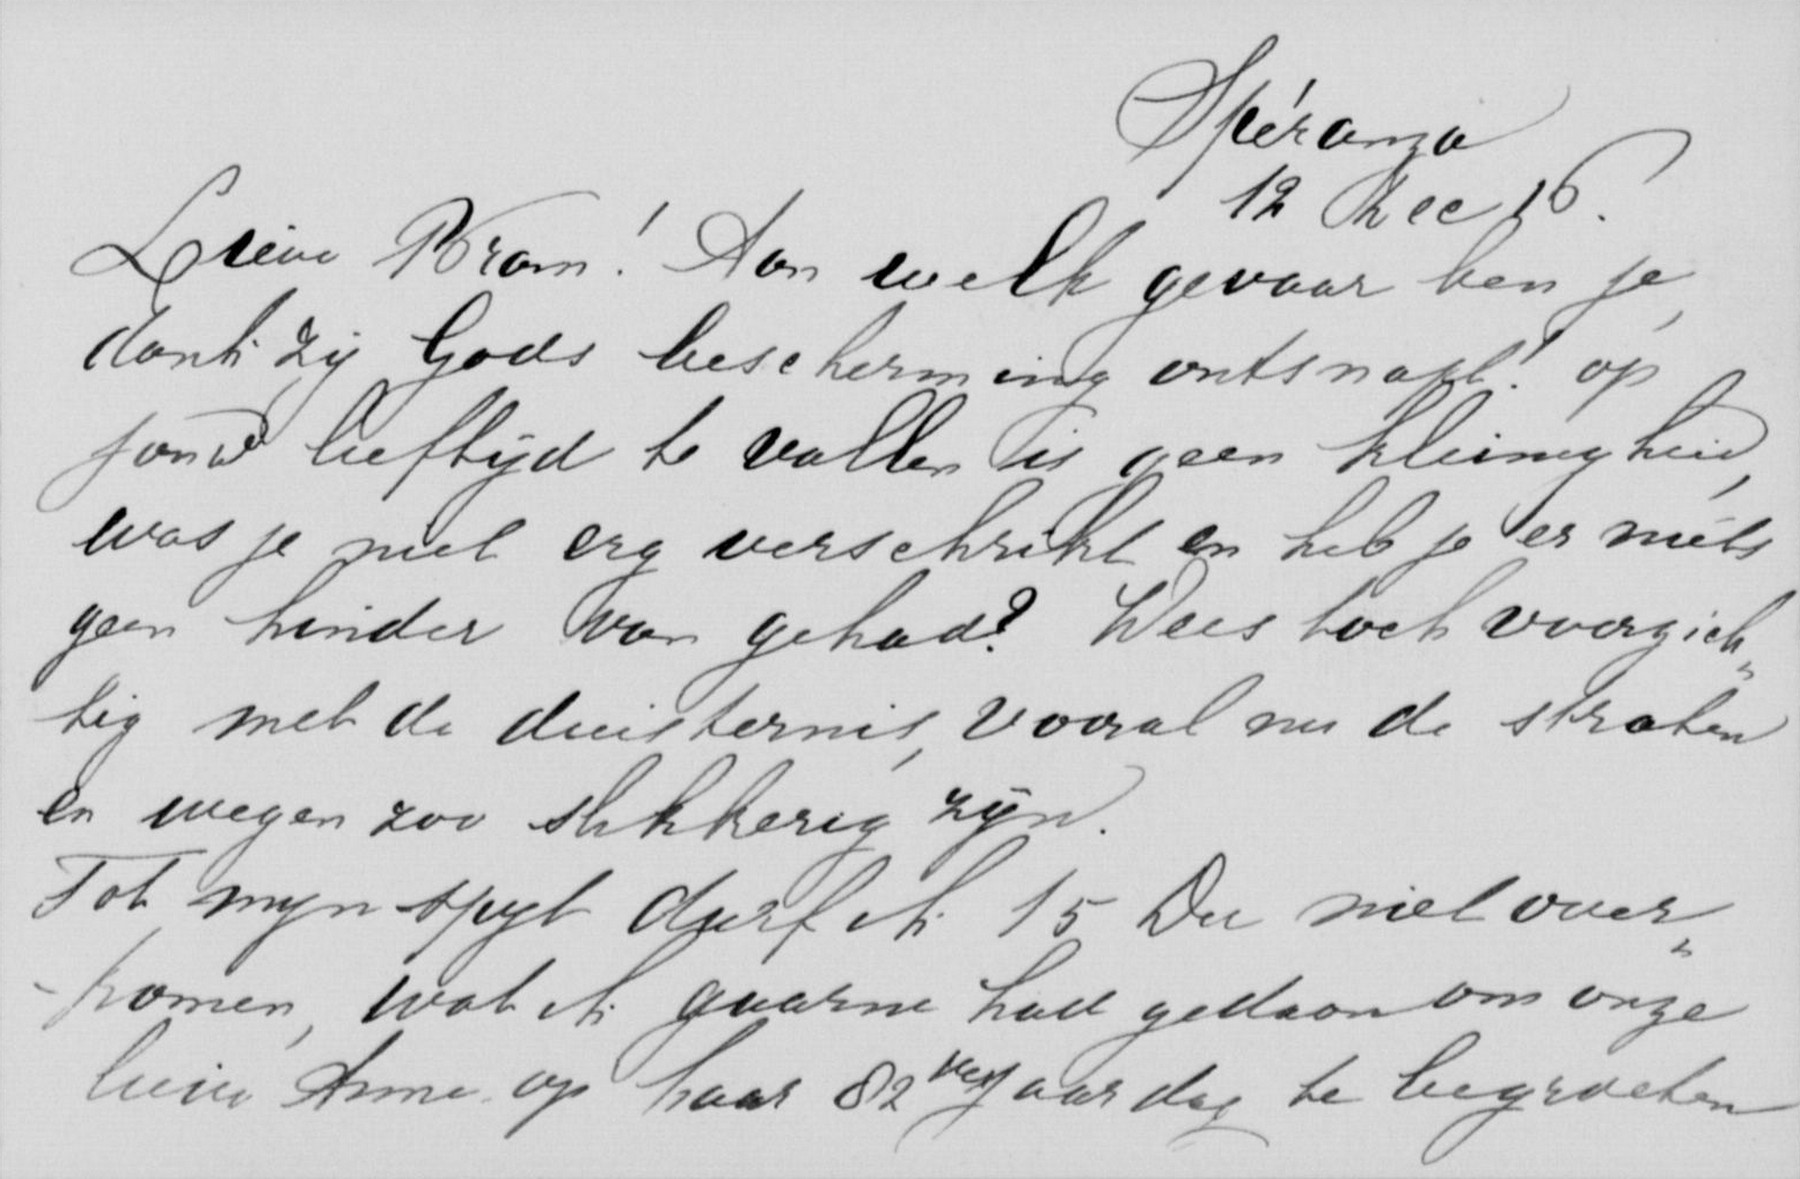 Spéranza
12 Dec 16.
Lieve Bram! Aan welk gevaar ben je,
dank zij Gods bescherming ontsnapt! op
jouw leeftijd te vallen is geen kleinigheid,
was je niet erg verschrikt en heb je er niets
geen hinder van gehad? Wees toch voorzich„
tig met de duisternis, vooral nu de straten
en wegen zoo slikkerig zijn.
Tot mijn spijt durf ik 15 Dec niet over„
-komen, wat ik gaarne had gedaan om onze
lieve Anna op haar 82 verjaardag te begroeten